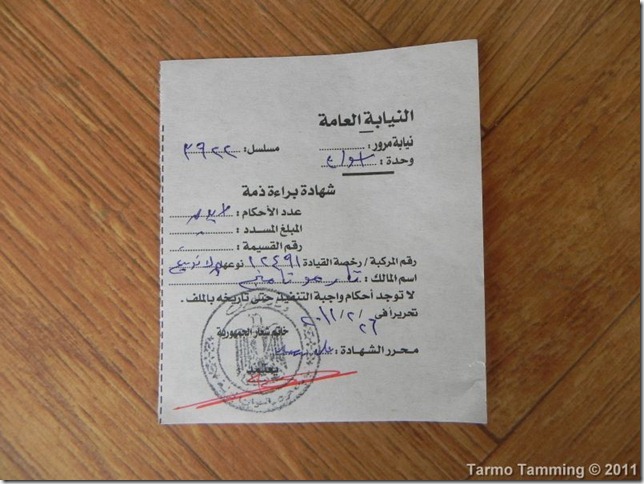 النيابة العامة
نيابة مرور :
مسلسل : ٣٩٢٢
وحدة : أسوان
شهادة براءة ذمة
عدد الأحكام :
المبلغ المسدد :
رقم القسيمة :
رقم المركبة / رخصة القيادة ١٢٤٩١ نوعها
اسم المالك : تارمو تامنج
لا توجد أحكام واجبة التنفيذ حتى تاريخه بالملف .
تحريراً فى ٢٠١١/٢/٢٦
خاتم شعار الجمهورية
محرر الشهادة :
يعتمد
Tarmo Tamming © 2011